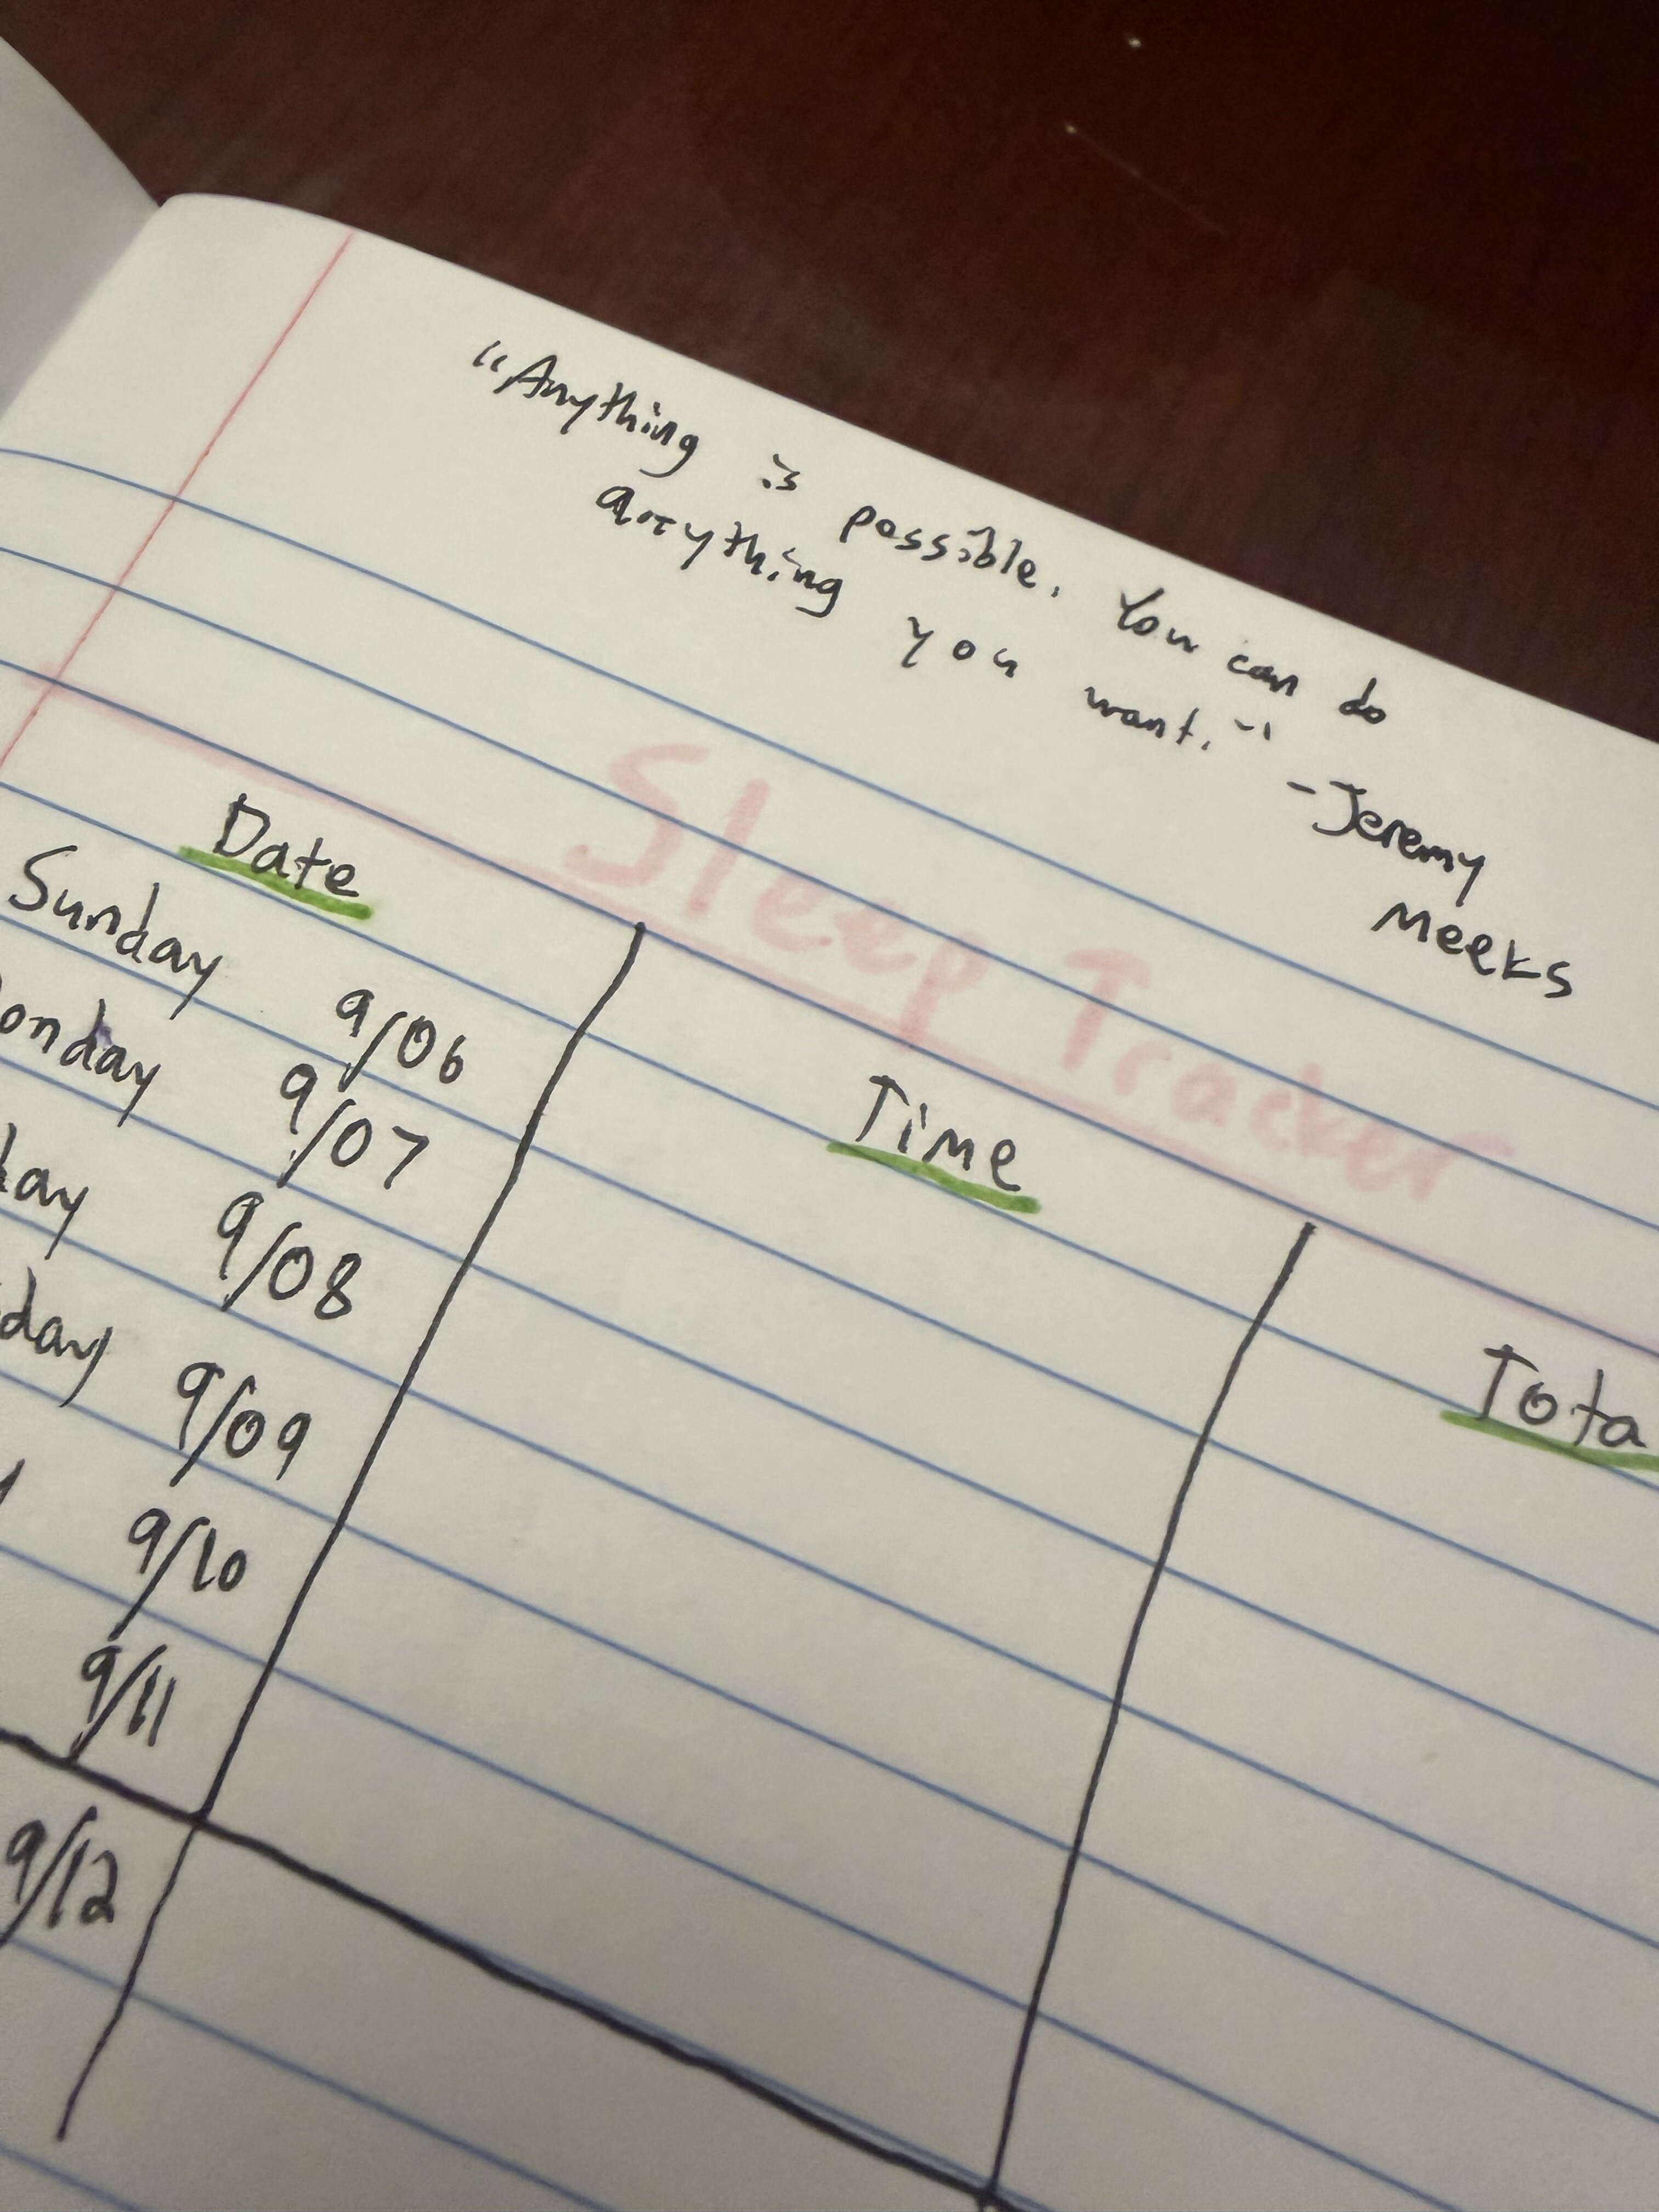 "Anything is possible. You can do
anything you want."
-Jeremy
Meeks
Sleep Tracker
Date Time Tota
Sunday 9/06
onday 9/07
day 9/08
day 9/09
9/10
9/11
9/12